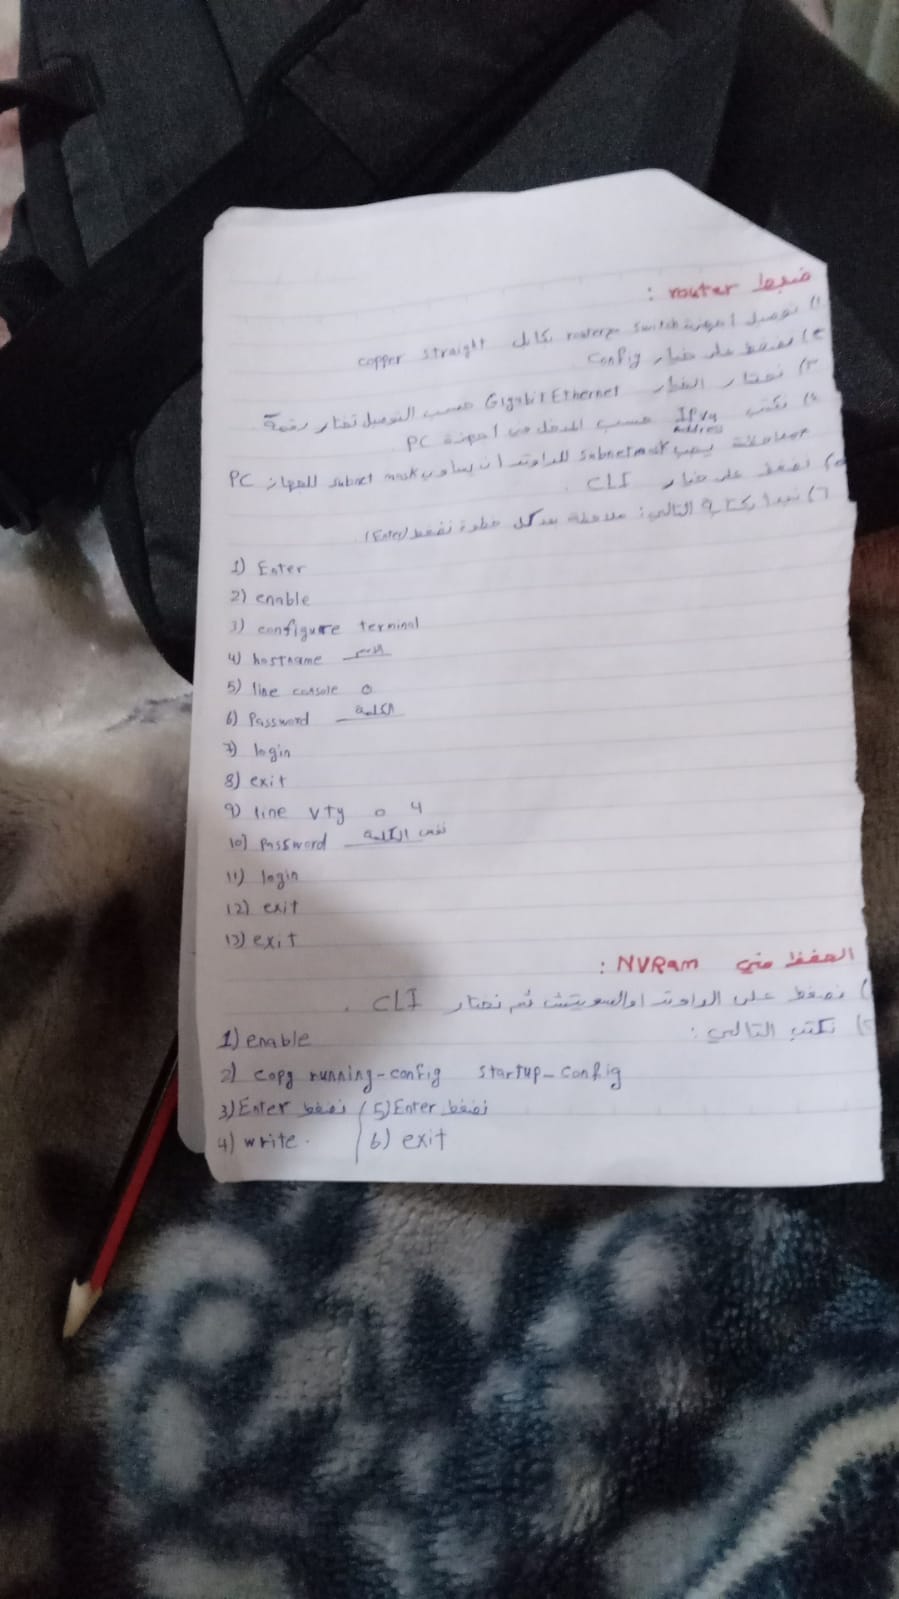 ضبط router :
١) توصيل اجهزة switch و router بكابل copper straight
٢) نضغط على خيار Config
٣) نختار الخيار GigabitEthernet حسب التوصيل تختار رقمة.
٤) نكتب IPv4 address حسب المدخل من اجهزة PC.
ملاحظة يجب subnetmask للراوتر ان يساوي subnet mask للجهاز PC
٥) نضغط على خيار CLI .
٦) نبدا بكتابة التالي: ملاحظة بعد كل خطوة نضغط (Enter)
1) Enter
2) enable
3) configure terminal
4) hostname الاسم
5) line console 0
6) Password الكلمة
7) login
8) exit
9) line vty 0 4
10) Password نفس الكلمة
11) login
12) exit
13) exit
الحفظ في NVRam :
١) نضغط على الراوتر او السويتش ثم نختار CLI .
٢) نكتب التالي :
1) enable
2) copy running-config startup-config
3) Enter نضغط / 5) Enter نضغط
4) write . / 6) exit